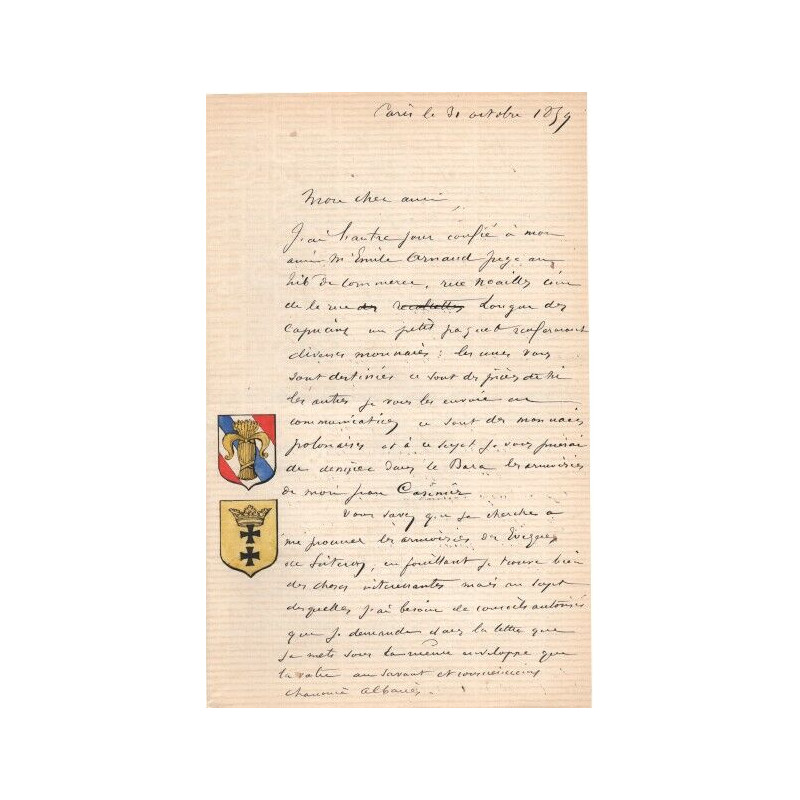 Paris le 31 octobre 1859
Mon cher ami,
J'ai l'autre jour confié à mon
ami Mr Emile Arnaud juge au
trib de commerce, rue Noailles coin
de la rue des Récolettes Longue des
Capucins un petit paquet renfermant
diverses monnaies; les unes vous
sont destinées ce sont des pièces de
les autres je vous les envoie en
communication ce sont des monnaies
polonaises et à ce sujet je vous prierai
de dans le Bara les armoiries
de mon Jean Casimir
Vous savez que je cherche à
me procurer les armoiries des Evêques
de en fouillant je trouve bien
des choses intéressantes mais au sujet
desquelles j'ai besoin de conseils autorisés
que je demande dans la lettre que
je mets sous la même enveloppe que
la votre au savant et consciencieux
chanoine Albanès.